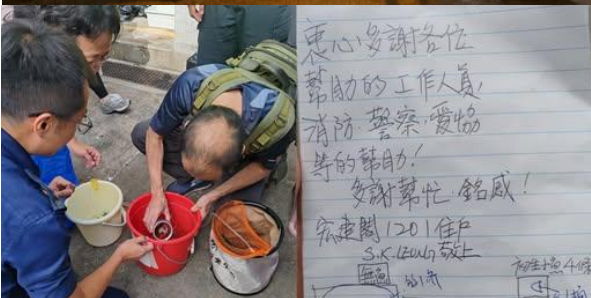 衷心多謝各位
幫助的工作人員,
消防,警察,愛協
等的幫助!
多謝幫忙,銘感!
宏建閣1201住户
S.K.LEUNG 敬上